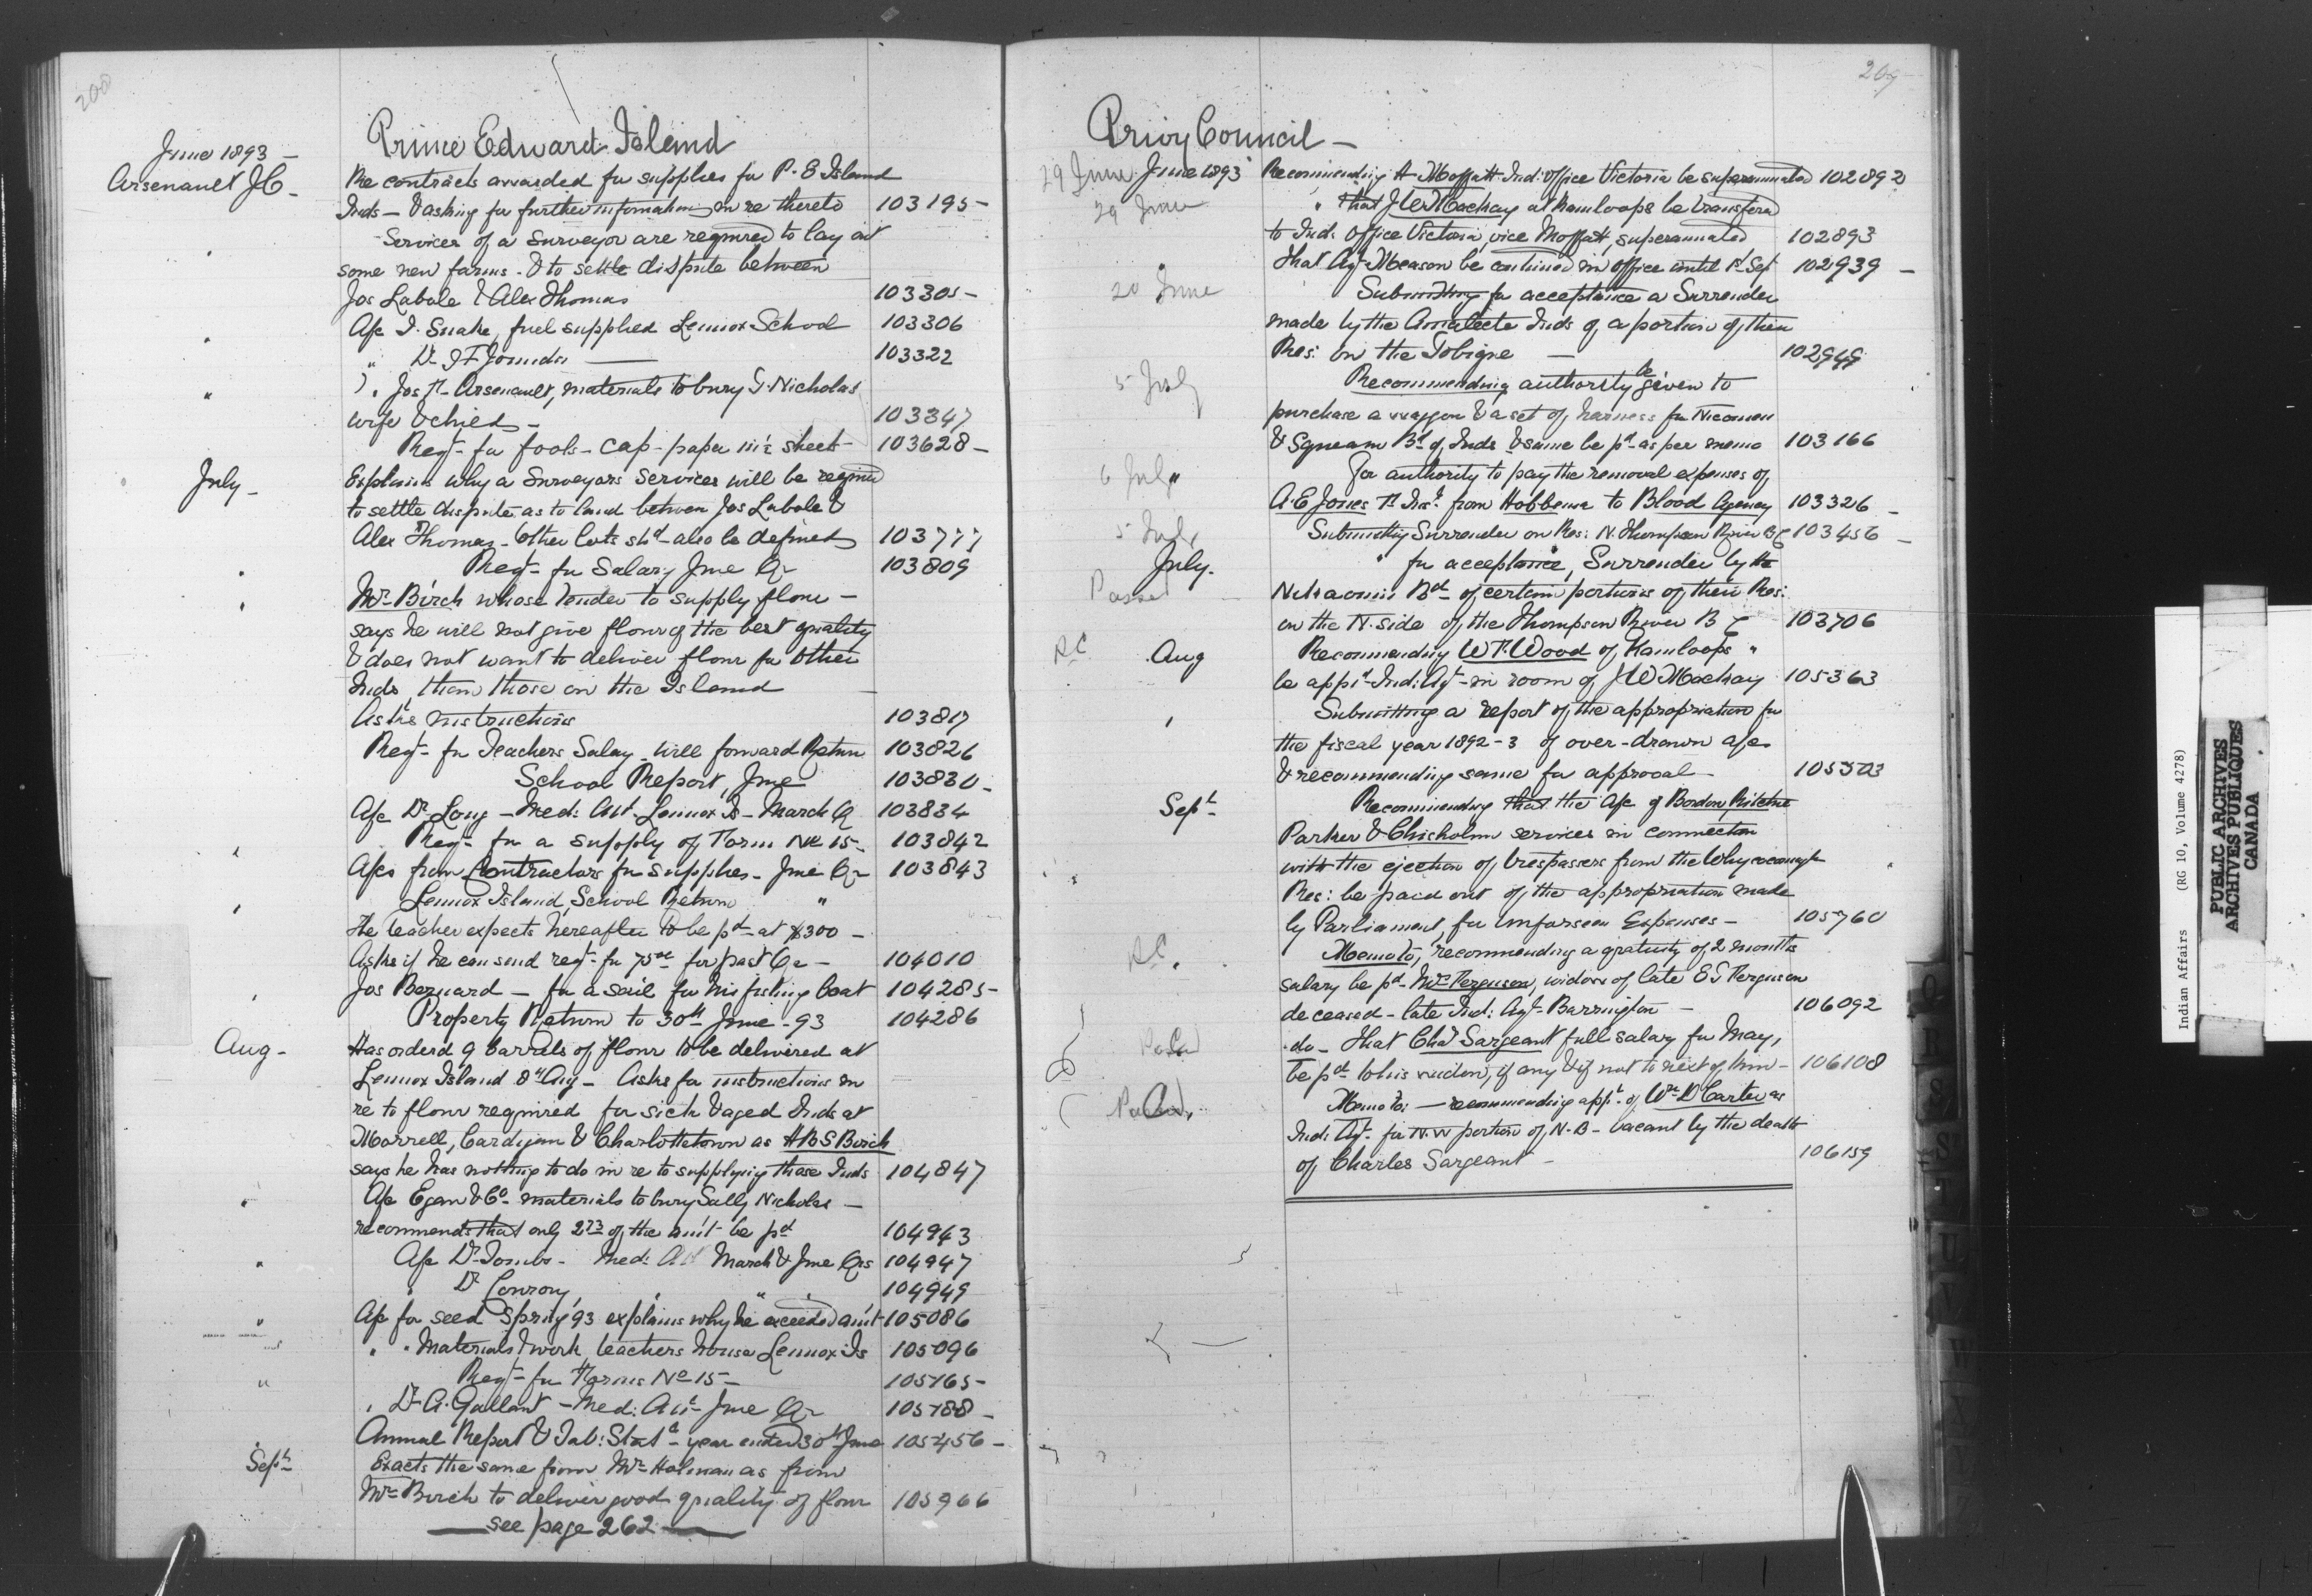 208
Prince Edward Island
June 1893 —
Arsenault J C —
Re contracts awarded for supplies for P. E Island
Inds — & asking for further information in re thereto 103195 —
Services of a Surveyor are required to lay out
some new farms — & to settle dispute between
Jos Labole & Alex Thomas 103305 —
A/c I. Snake, fuel supplied Lennox School 103306
" Dr J F 103322
" Jos Arsenault, materials to bury G. Nicholas
wife & child — 103347
Reqt for fools-cap-paper in ½ sheet 103628 —
July —
Explains why a Surveyors services will be required
to settle dispute as to land between Jos Labole &
Alex Thomas — Other lots shd also be defined 103777
Reqt for Salary June Qr 103809
Mr Birch whose tender to supply flour —
says he will not give flour of the best quality
& does not want to deliver flour for other
Inds, than those on the Island —
Asks instructions 103817
Reqt for Teachers Salary. Will forward Return 103826
School Report, June 103830 —
A/c Dr Long — Med: Att Lennox Is — March Q 103834
Reqt for a supply of Form No 15 — 103842
A/cs from Contractors for supplies — June Qr 103843
Lennox Island, School Return "
The teacher expects hereafter to be pd at $300 —
Asks if he can send reqt for 75 00 for past Qr — 104010
Jos Bernard — for a sail for his fishing boat 104285 —
Property Return to 30th June — 93 104286
Aug —
Has orderd 9 barrels of flour to be delivered at
Lennox Island 8th Aug — Asks for instructions in
re to flour required for sick & aged Inds at
Morrell, Cardigan & Charlottetown as H B S Birch
says he has nothing to do in re to supplying those Inds 104847
A/c Egan & Co — materials to bury Sally Nicholas —
recommends that only 2 73 of the amt be pd 104943
A/c Dr Toombs — Med: Att March & June Qrs 104947
" Dr Conroy, " " 104949
A/c for seed Spring 93 explains why he exceeded amt 105086
" " Materials & work, teachers house Lennox Is 105096
Reqt for Forms No 15 — 105165 —
" Dr A. Gallant — Med: Att — June Qr 105188 —
Annual Report & Tab: Stat — year ended 30th June 105456 —
Sept
Exacts the same from Mr Holman as from
Mr Birch to deliver good quality of flour 105966
— see page 262 —
209
Privy Council —
29 June June 1893 Recommending A Moffatt Ind: Office Victoria be superannuated 102892
29 June " that J W Mackay at Kamloops be transferd
to Ind: Office Victoria, vice Moffatt, superannuated 102893
" That Agt Meason be continued in office until 1st Sep 102939 —
20 June Submitting for acceptance a Surrender
made by the Amalecite Inds of a portion of their
Res: on the Tobique — 102949
5 July Recommending authority be given to
purchase a waggon & a set of harness for Nicomen
& Squeam Bd of Inds & same be pd as per memo 103166
6 July " For authority to pay the removal expenses of
A. E Jones from Hobbema to Blood Agency 103326 —
5 July Submitting Surrender on Res: N. Thompson River B C 103456 —
July — " for acceptance, Surrender by the
Passed Bd of certain portions of their Res:
on the N. side of the Thompson River B C 103706
Aug Recommending W F. Wood of Kamloops "
be appt Ind: Agt in room of J W Mackay 105363
Submitting a report of the appropriation for
the fiscal year 1892-3 of over-drawn a/cs
& recommending same for approval — 105503
Sept Recommending that the A/c of Borden, Ritchie
Parker & Chisholm services in connection
with the ejection of trespassers from the Whycocomagh
Res: be paid out of the appropriation made
by Parliament, for Unforseen Expenses — 105760
Memo to, recommending a gratuity of 2 months
salary be pd Mrs Ferguson, widow of late E J Ferguson
deceased — late Ind: Agt Barrington — 106092
do — That Chas Sargeant full salary for May,
be pd to his widow, if any & if not to next of kin — 106108
Memo to: — recommending appt of Wm D Carter as
Ind: Agt for N. W portion of N. B — vacant by the death
of Charles Sargeant — 106159
Indian Affairs (RG 10, Volume 4278)
PUBLIC ARCHIVES
ARCHIVES PUBLIQUES
CANADA